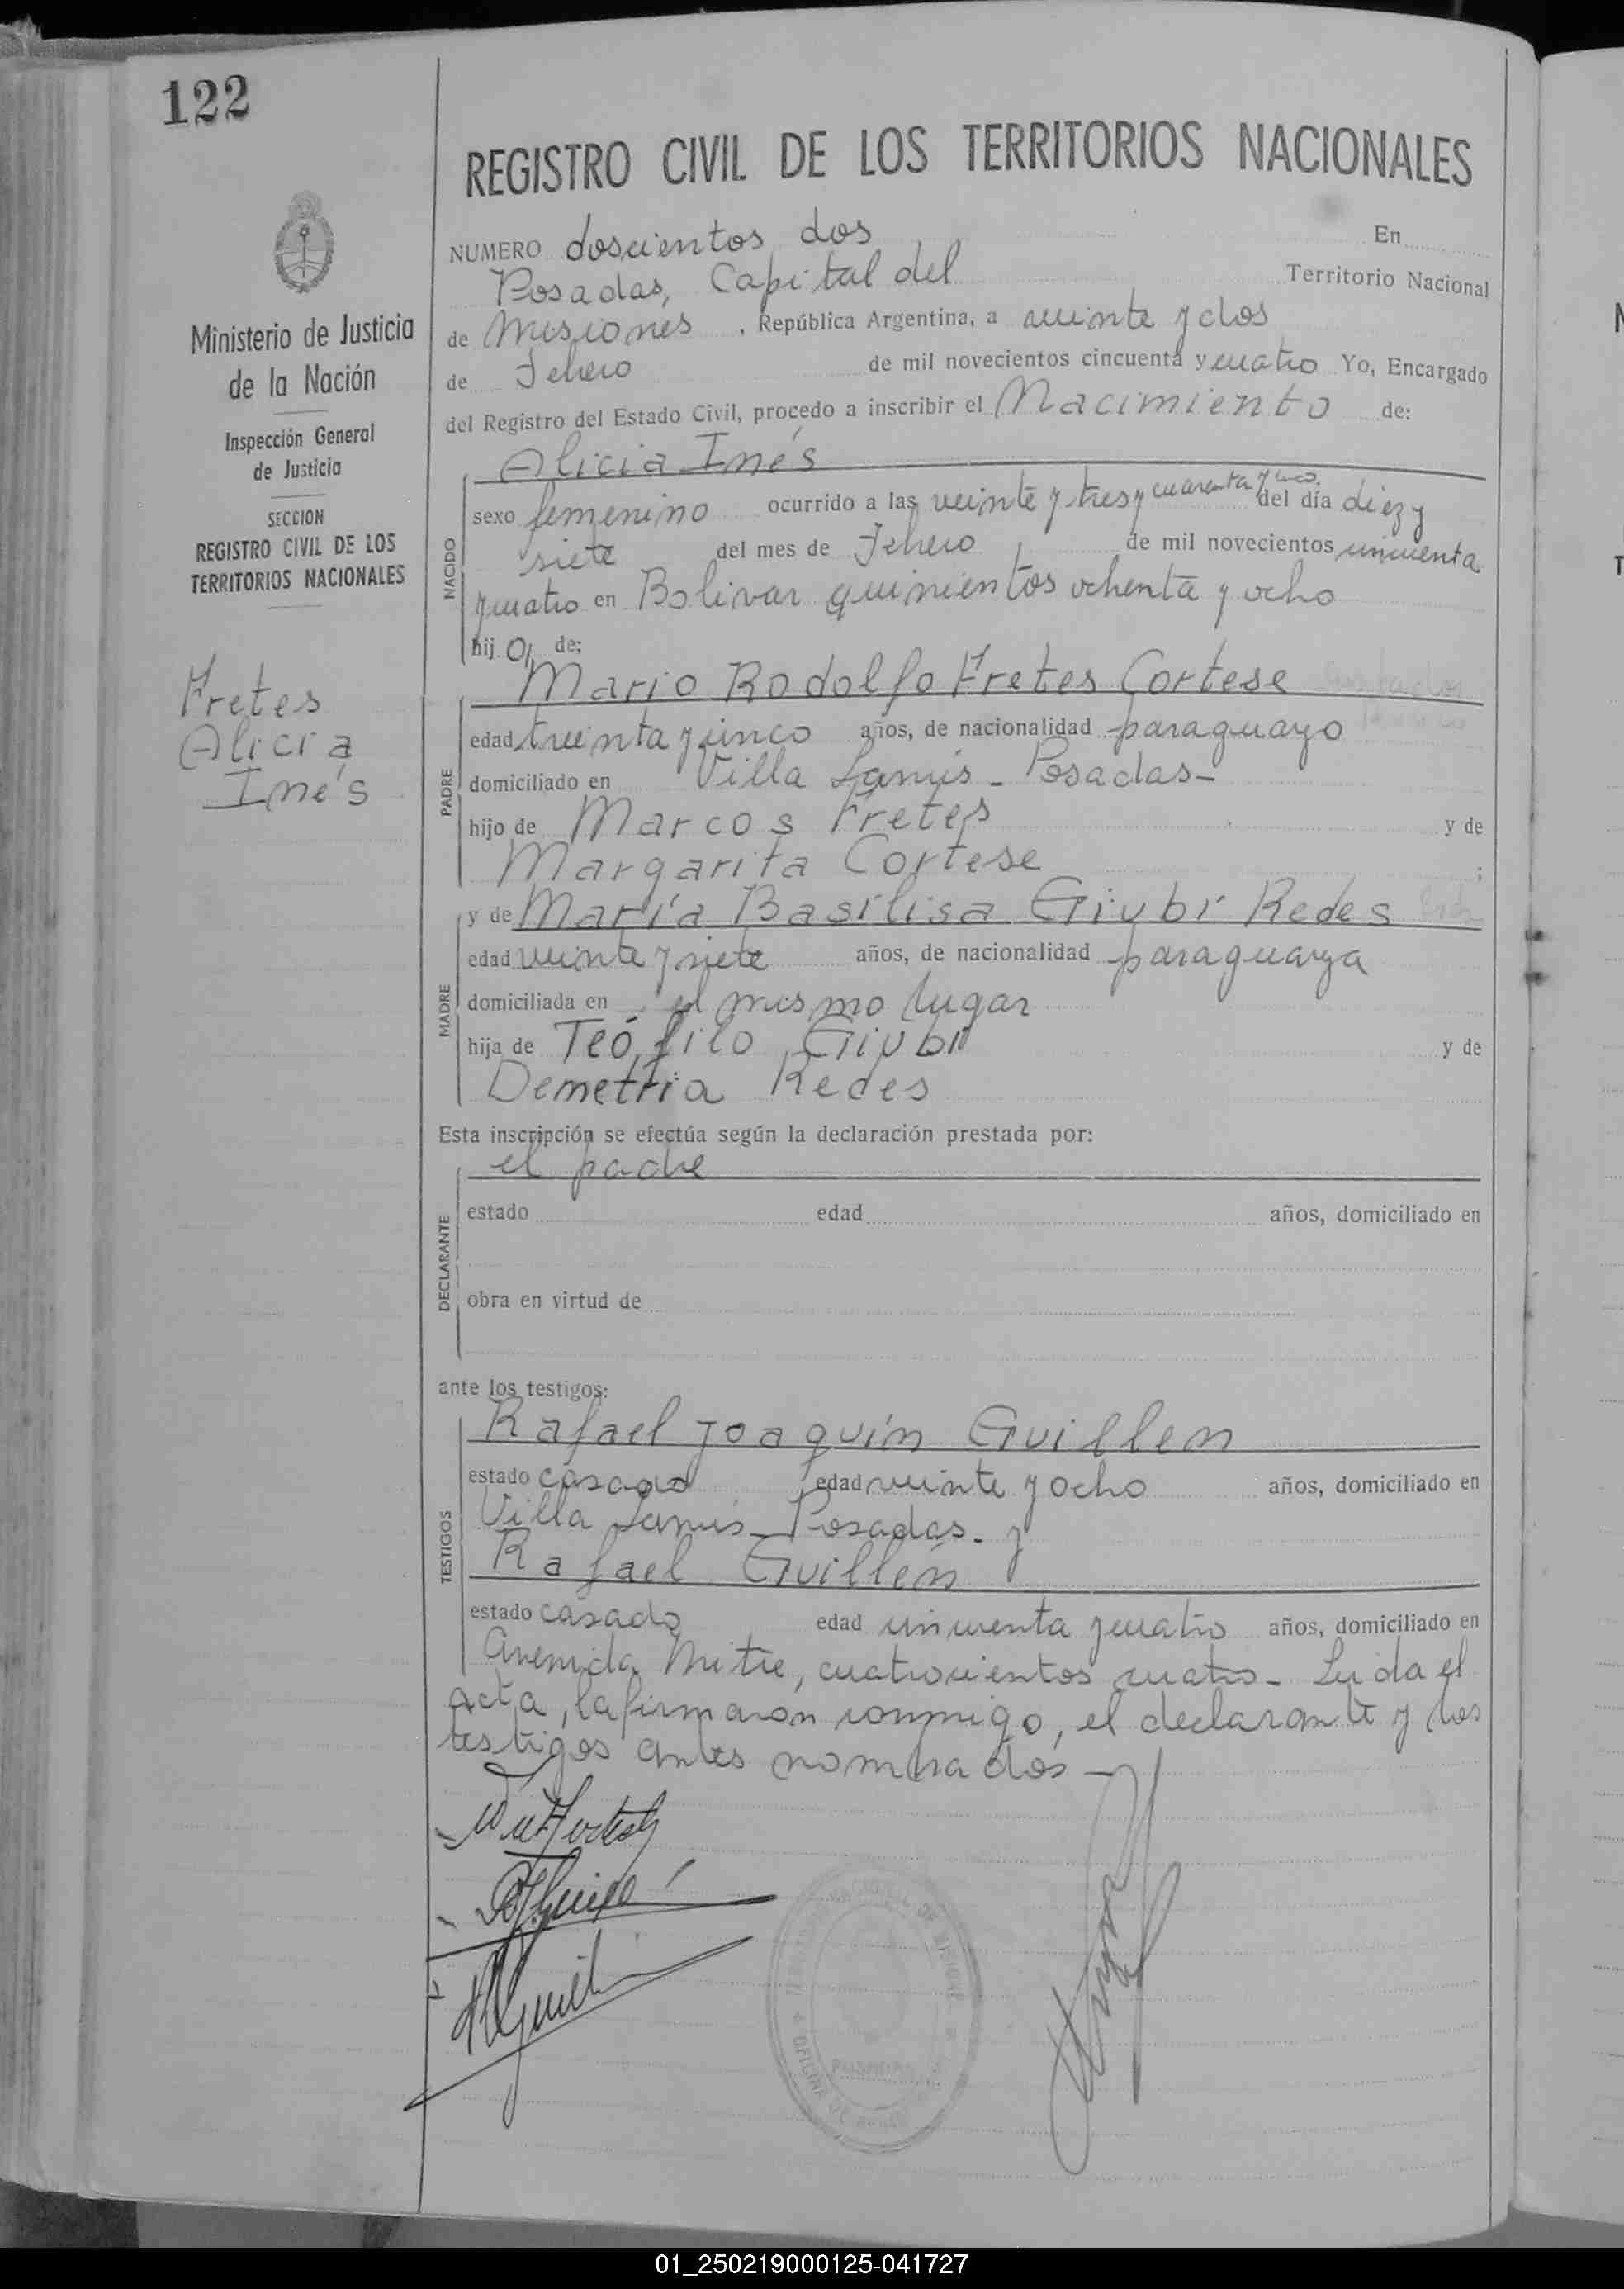 122
REGISTRO CIVIL DE LOS TERRITORIOS NACIONALES
Ministerio de Justicia
de la Nación
Inspección General
de Justicia
SECCION
REGISTRO CIVIL DE LOS
TERRITORIOS NACIONALES
Fretes
Alicia
Inés
NUMERO doscientos dos En
Posadas, Capital del Territorio Nacional
de Misiones, República Argentina, a veinte y dos
de Febrero de mil novecientos cincuenta y cuatro Yo, Encargado
del Registro del Estado Civil, procedo a inscribir el Nacimiento de:
NACIDO
Alicia Inés
sexo femenino ocurrido a las veinte y tres y cuarenta y cinco del día diez y
siete del mes de Febrero de mil novecientos cincuenta
y cuatro en Bolivar quinientos ochenta y ocho
hij a de:
PADRE
Mario Rodolfo Fretes Cortese
edad treinta y cinco años, de nacionalidad paraguayo
domiciliado en Villa Lanús - Posadas -
hijo de Marcos Fretes y de
Margarita Cortese ;
MADRE
y de María Basilisa Giubi Redes
edad veinte y siete años, de nacionalidad paraguaya
domiciliada en el mismo lugar
hija de Teófilo Giubi y de
Demetria Redes
Esta inscripción se efectúa según la declaración prestada por:
DECLARANTE
el padre
estado edad años, domiciliado en
obra en virtud de
ante los testigos:
TESTIGOS
Rafael Joaquín Guillen
estado casado edad veinte y ocho años, domiciliado en
Villa Lanús - Posadas - y
Rafael Guillén
estado casado edad cincuenta y cuatro años, domiciliado en
Avenida Mitre, cuatrocientos cuatro - Leida el
acta, la firmaron conmigo, el declarante y los
testigos antes nombrados -
01_250219000125-041727